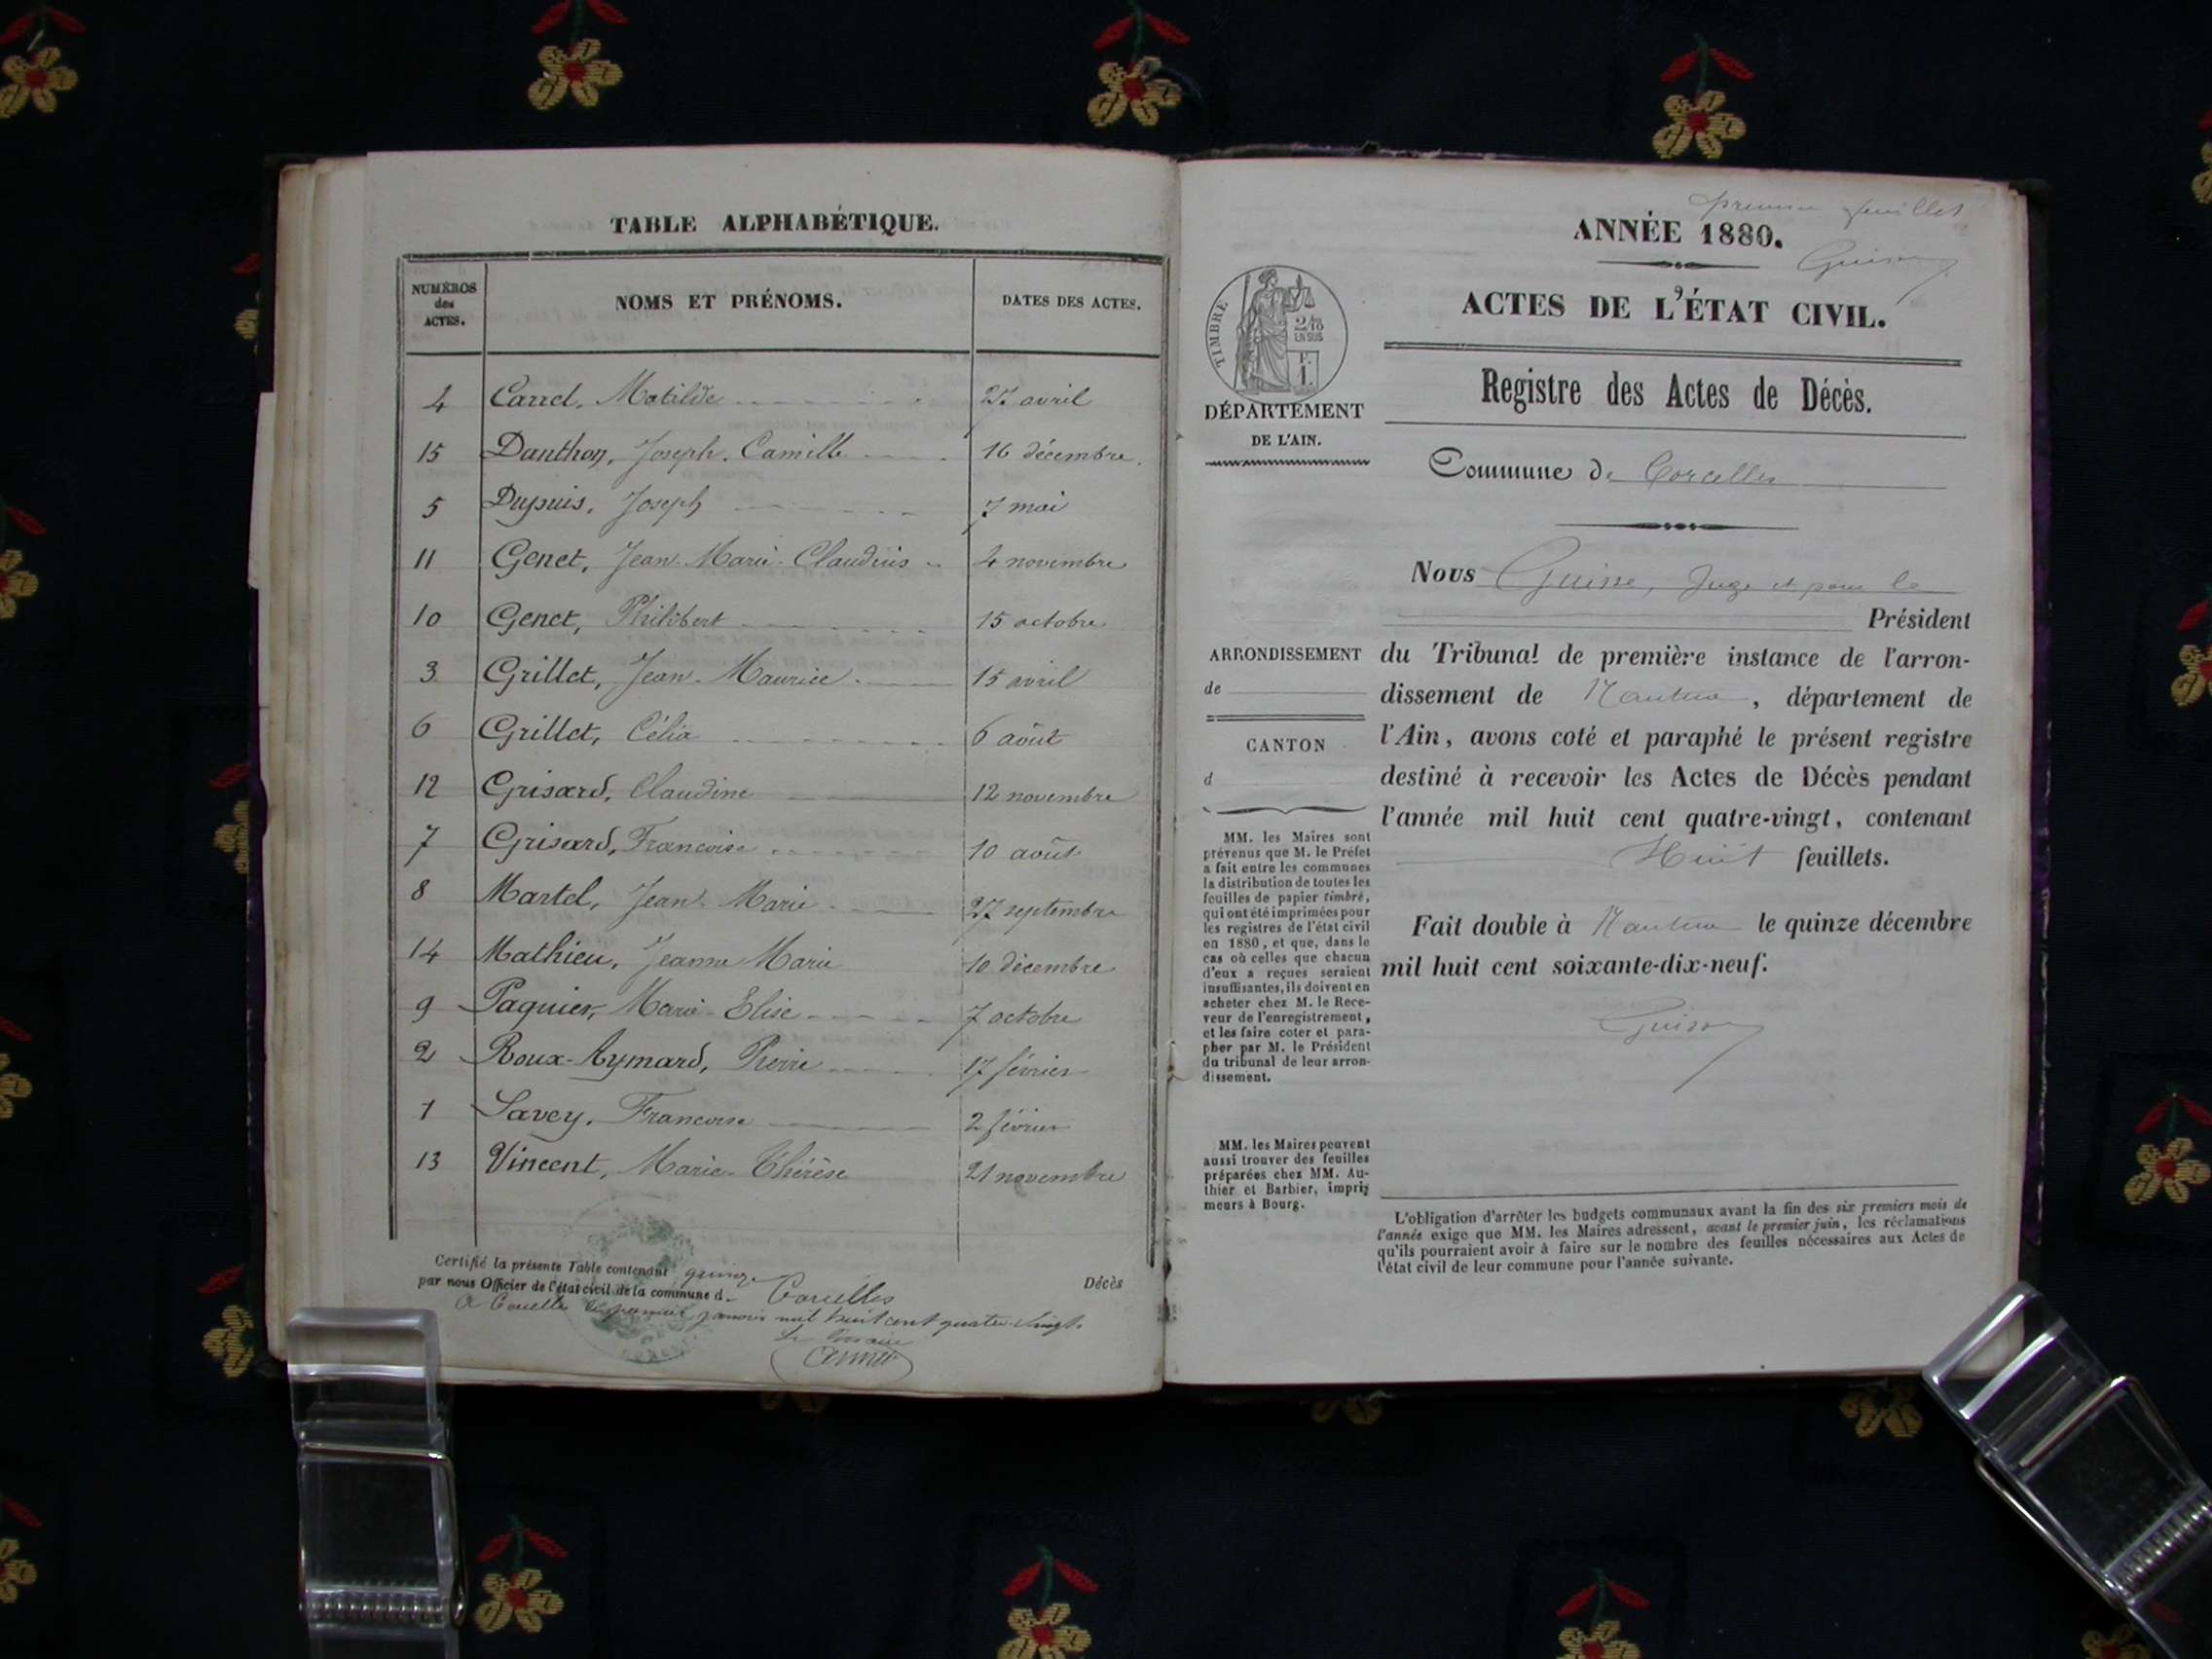 TABLE ALPHABÉTIQUE.
NUMÉROS
des
ACTES.
NOMS ET PRÉNOMS.
DATES DES ACTES.
4 Carrel, Matilde 27 avril
15 Danthon, Joseph. Camille 16 décembre.
5 Dupuis, Joseph 7 mai
11 Genet, Jean-Marie-Claudius 4 novembre
10 Genet, Philibert 15 octobre
3 Grillet, Jean-Maurice 15 avril
6 Grillet, Célia 6 août
12 Grisard, Claudine 12 novembre
7 Grisard, Francoise 10 août
8 Martel, Jean-Marie 27 septembre
14 Mathieu, Jeanne Marie 10 décembre
9 Paquier, Marie-Elise 7 octobre
2 Roux-Aymard, Pierre 17 février
1 Savey, Francoise 2 février
13 Vincent, Marie-Thérèse 21 novembre
Certifié la présente Table contenant quinze Décès
par nous Officier de l'état civil de la commune d- Corcelles
A Corcelles le premier janvier mil huit cent quatre-vingt.
Le Maire
premier feuillet
ANNÉE 1880.
Guisse
ACTES DE L'ÉTAT CIVIL.
TIMBRE
2/10
EN SUS
F.
1.
DÉPARTEMENT
DE L'AIN.
Registre des Actes de Décès.
Commune de Corcelles
Nous Guisse, Juge et pour le
Président
du Tribunal de première instance de l'arron-
dissement de Nantua, département de
l'Ain, avons coté et paraphé le présent registre
destiné à recevoir les Actes de Décès pendant
l'année mil huit cent quatre-vingt, contenant
Huit feuillets.
Fait double à Nantua le quinze décembre
mil huit cent soixante-dix-neuf.
Guisse
ARRONDISSEMENT
de
CANTON
d
MM. les Maires sont
prévenus que M. le Préfet
a fait entre les communes
la distribution de toutes les
feuilles de papier timbré,
qui ont été imprimées pour
les registres de l'état civil
en 1880, et que, dans le
cas où celles que chacun
d'eux a reçues seraient
insuffisantes, ils doivent en
acheter chez M. le Rece-
veur de l'enregistrement,
et les faire coter et para-
pher par M. le Président
du tribunal de leur arron-
dissement.
MM. les Maires peuvent
aussi trouver des feuilles
préparées chez MM. Au-
thier et Barbier, impri-
meurs à Bourg.
L'obligation d'arrêter les budgets communaux avant la fin des six premiers mois de
l'année exige que MM. les Maires adressent, avant le premier juin, les réclamations
qu'ils pourraient avoir à faire sur le nombre des feuilles nécessaires aux Actes de
l'état civil de leur commune pour l'année suivante.